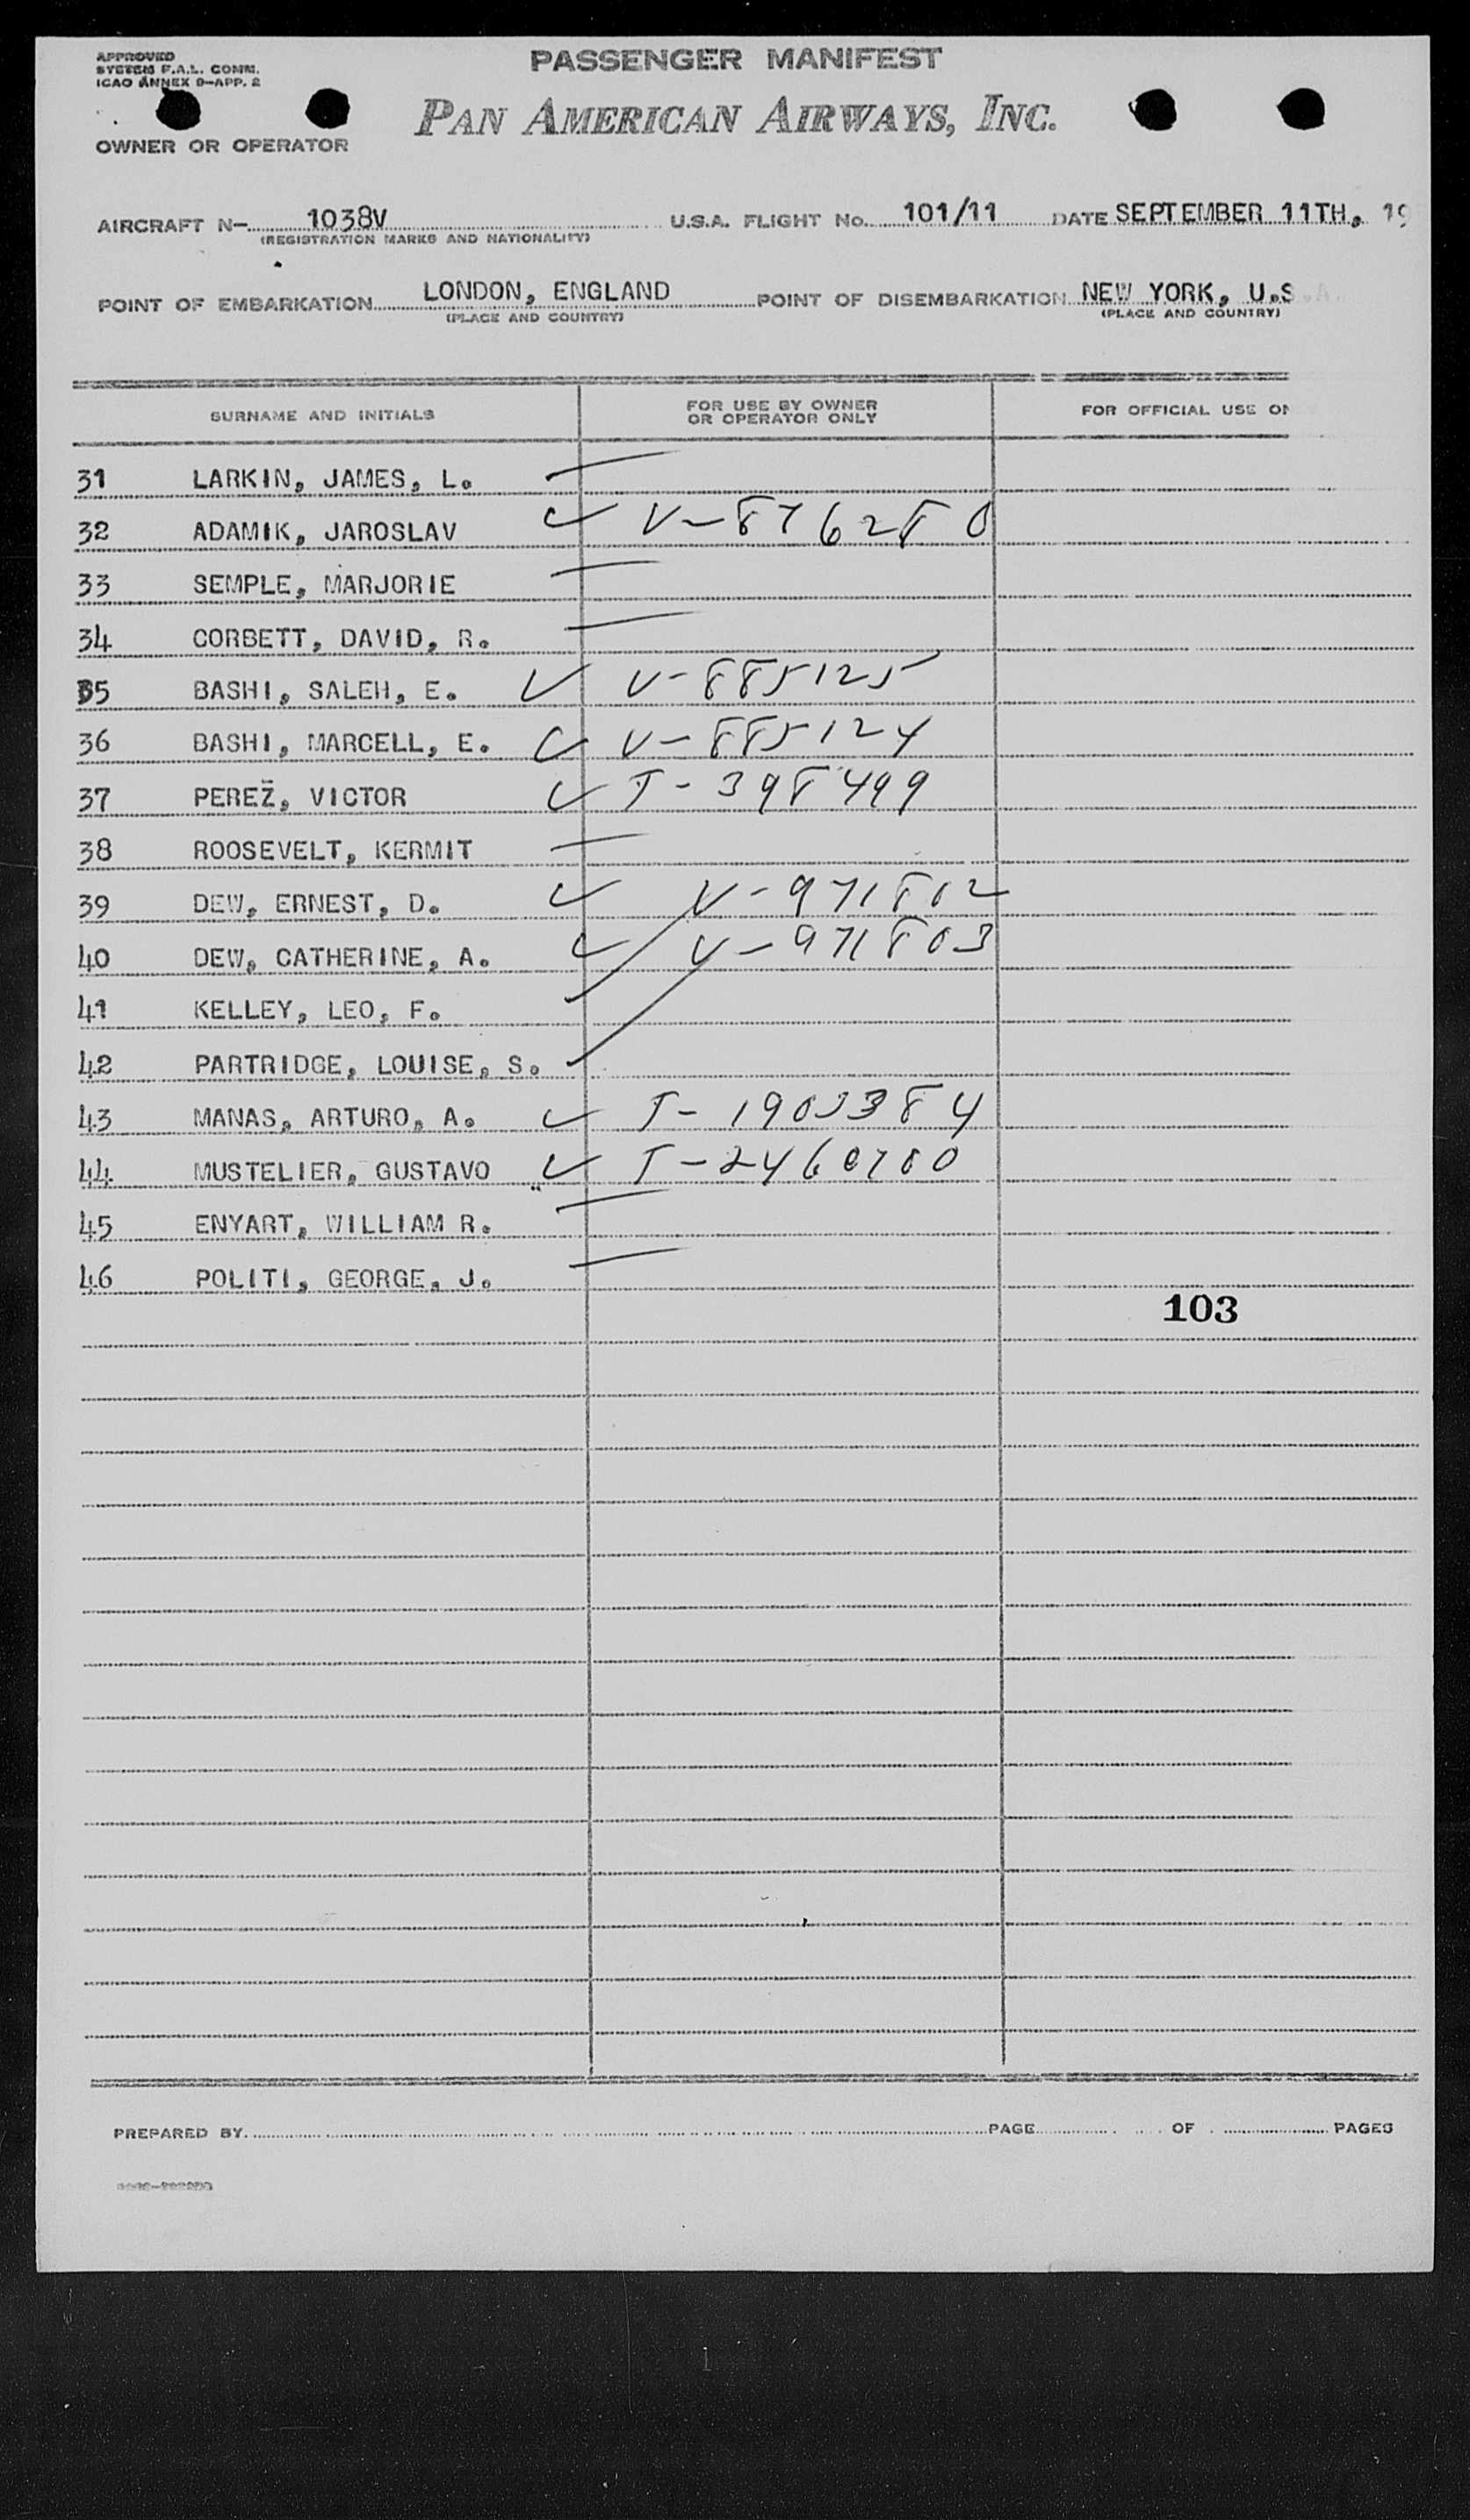 APPROVED
SYSTEM F.A.L. COMM.
ICAO ANNEX 9-APP. 2
PASSENGER MANIFEST
PAN AMERICAN AIRWAYS, INC.
OWNER OR OPERATOR
AIRCRAFT N- 1038V U.S.A. FLIGHT No. 101/11 DATE SEPTEMBER 11TH, 19
(REGISTRATION MARKS AND NATIONALITY)
POINT OF EMBARKATION LONDON, ENGLAND POINT OF DISEMBARKATION NEW YORK, U.S.A.
(PLACE AND COUNTRY) (PLACE AND COUNTRY)
SURNAME AND INITIALS FOR USE BY OWNER OR OPERATOR ONLY FOR OFFICIAL USE ON
31 LARKIN, JAMES, L.
32 ADAMIK, JAROSLAV ✓ V-876280
33 SEMPLE, MARJORIE
34 CORBETT, DAVID, R.
35 BASHI, SALEH, E. ✓ V-885125
36 BASHI, MARCELL, E. ✓ V-885124
37 PEREZ, VICTOR ✓ T-398499
38 ROOSEVELT, KERMIT
39 DEW, ERNEST, D. ✓ V-971802
40 DEW, CATHERINE, A. ✓ V-971803
41 KELLEY, LEO, F.
42 PARTRIDGE, LOUISE, S.
43 MANAS, ARTURO, A. ✓ T-1903384
44 MUSTELIER, GUSTAVO ✓ T-2460700
45 ENYART, WILLIAM R.
46 POLITI, GEORGE, J.
103
PREPARED BY PAGE OF PAGES